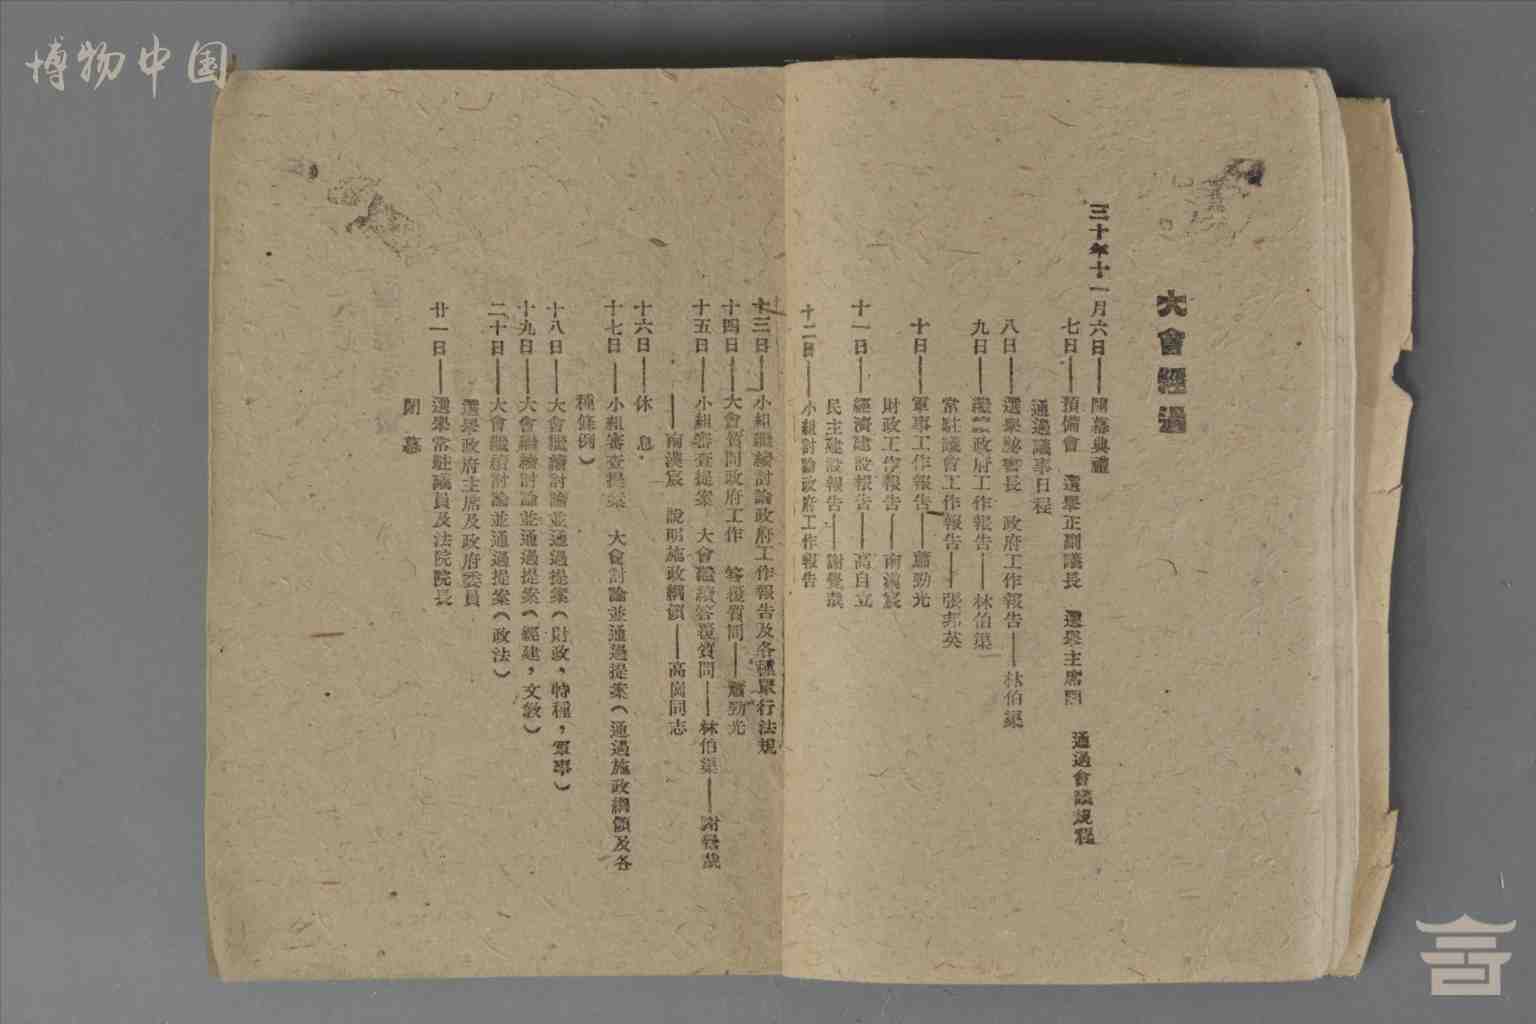 博物中国
大會經過
三十年十一月六日——開幕典禮
七日——預備會 選舉正副議長 選舉主席團 通過會議規程
通過議事日程
八日——選舉秘書長 政府工作報告——林伯渠
九日——繼續政府工作報告——林伯渠
常駐議會工作報告——張邦英
十日——軍事工作報告——蕭勁光
財政工作報告——南漢宸
十一日——經濟建設報告——高自立
民主建設報告——謝覺哉
十二日——小組討論政府工作報告
十三日——小組繼續討論政府工作報告及各種單行法規
十四日——大會質問政府工作 答覆質問——蕭勁光
十五日——小組審查提案 大會繼續答覆質問——林伯渠——謝覺哉
——南漢宸 說明施政綱領——高崗同志
十六日——休 息
十七日——小組審查提案 大會討論並通過提案(通過施政綱領及各
種條例)
十八日——大會繼續討論並通過提案(財政,特種,軍事)
十九日——大會繼續討論並通過提案(經建,文教)
二十日——大會繼續討論並通過提案(政法)
選舉政府主席及政府委員
廿一日——選舉常駐議員及法院院長
閉 幕